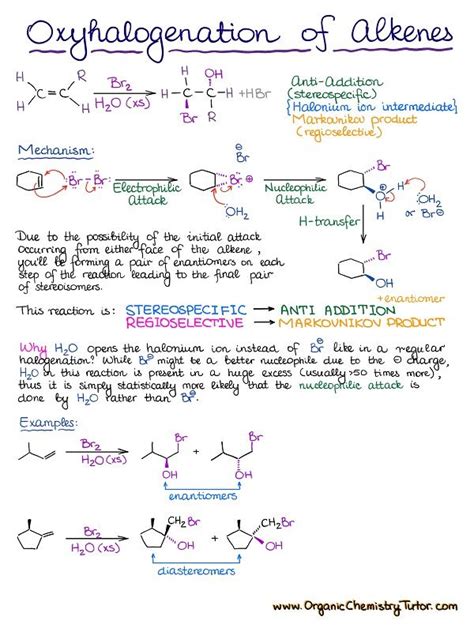 Oxyhalogenation of Alkenes
H R
C=C
H H
Br₂
H₂O (xs)
OH
H-C-C-R
Br H
+HBr
Anti-Addition
(stereospecific)
{Halonium ion intermediate}
Markovnikov product
(regioselective)
Mechanism:
:Br-Br:
Electrophilic
Attack
Br⊖
Br⊕
:OH₂
Nucleophilic
Attack
Br
O⊕
H
H
:OH₂
or Br⊖
H-transfer
Br
OH
+enantiomer
Due to the possibility of the initial attack
occurring from either face of the alkene,
you'll be forming a pair of enantiomers on each
step of the reaction leading to the final pair
of stereoisomers.
This reaction is: STEREOSPECIFIC → ANTI ADDITION
REGIOSELECTIVE → MARKOVNIKOV PRODUCT
Why H₂O opens the halonium ion instead of Br⊖ like in a regular
halogenation? While Br⊖ might be a better nucleophile due to the ⊖ charge,
H₂O in this reaction is present in a huge excess (usually >50 times more),
thus it is simply statistically more likely that the nucleophilic attack is
done by H₂O rather than Br⊖.
Examples:
Br₂
H₂O (xs)
Br
OH
+
Br
OH
enantiomers
Br₂
H₂O (xs)
CH₂Br
OH
+
CH₂Br
OH
diastereomers
www.OrganicChemistryTutor.com